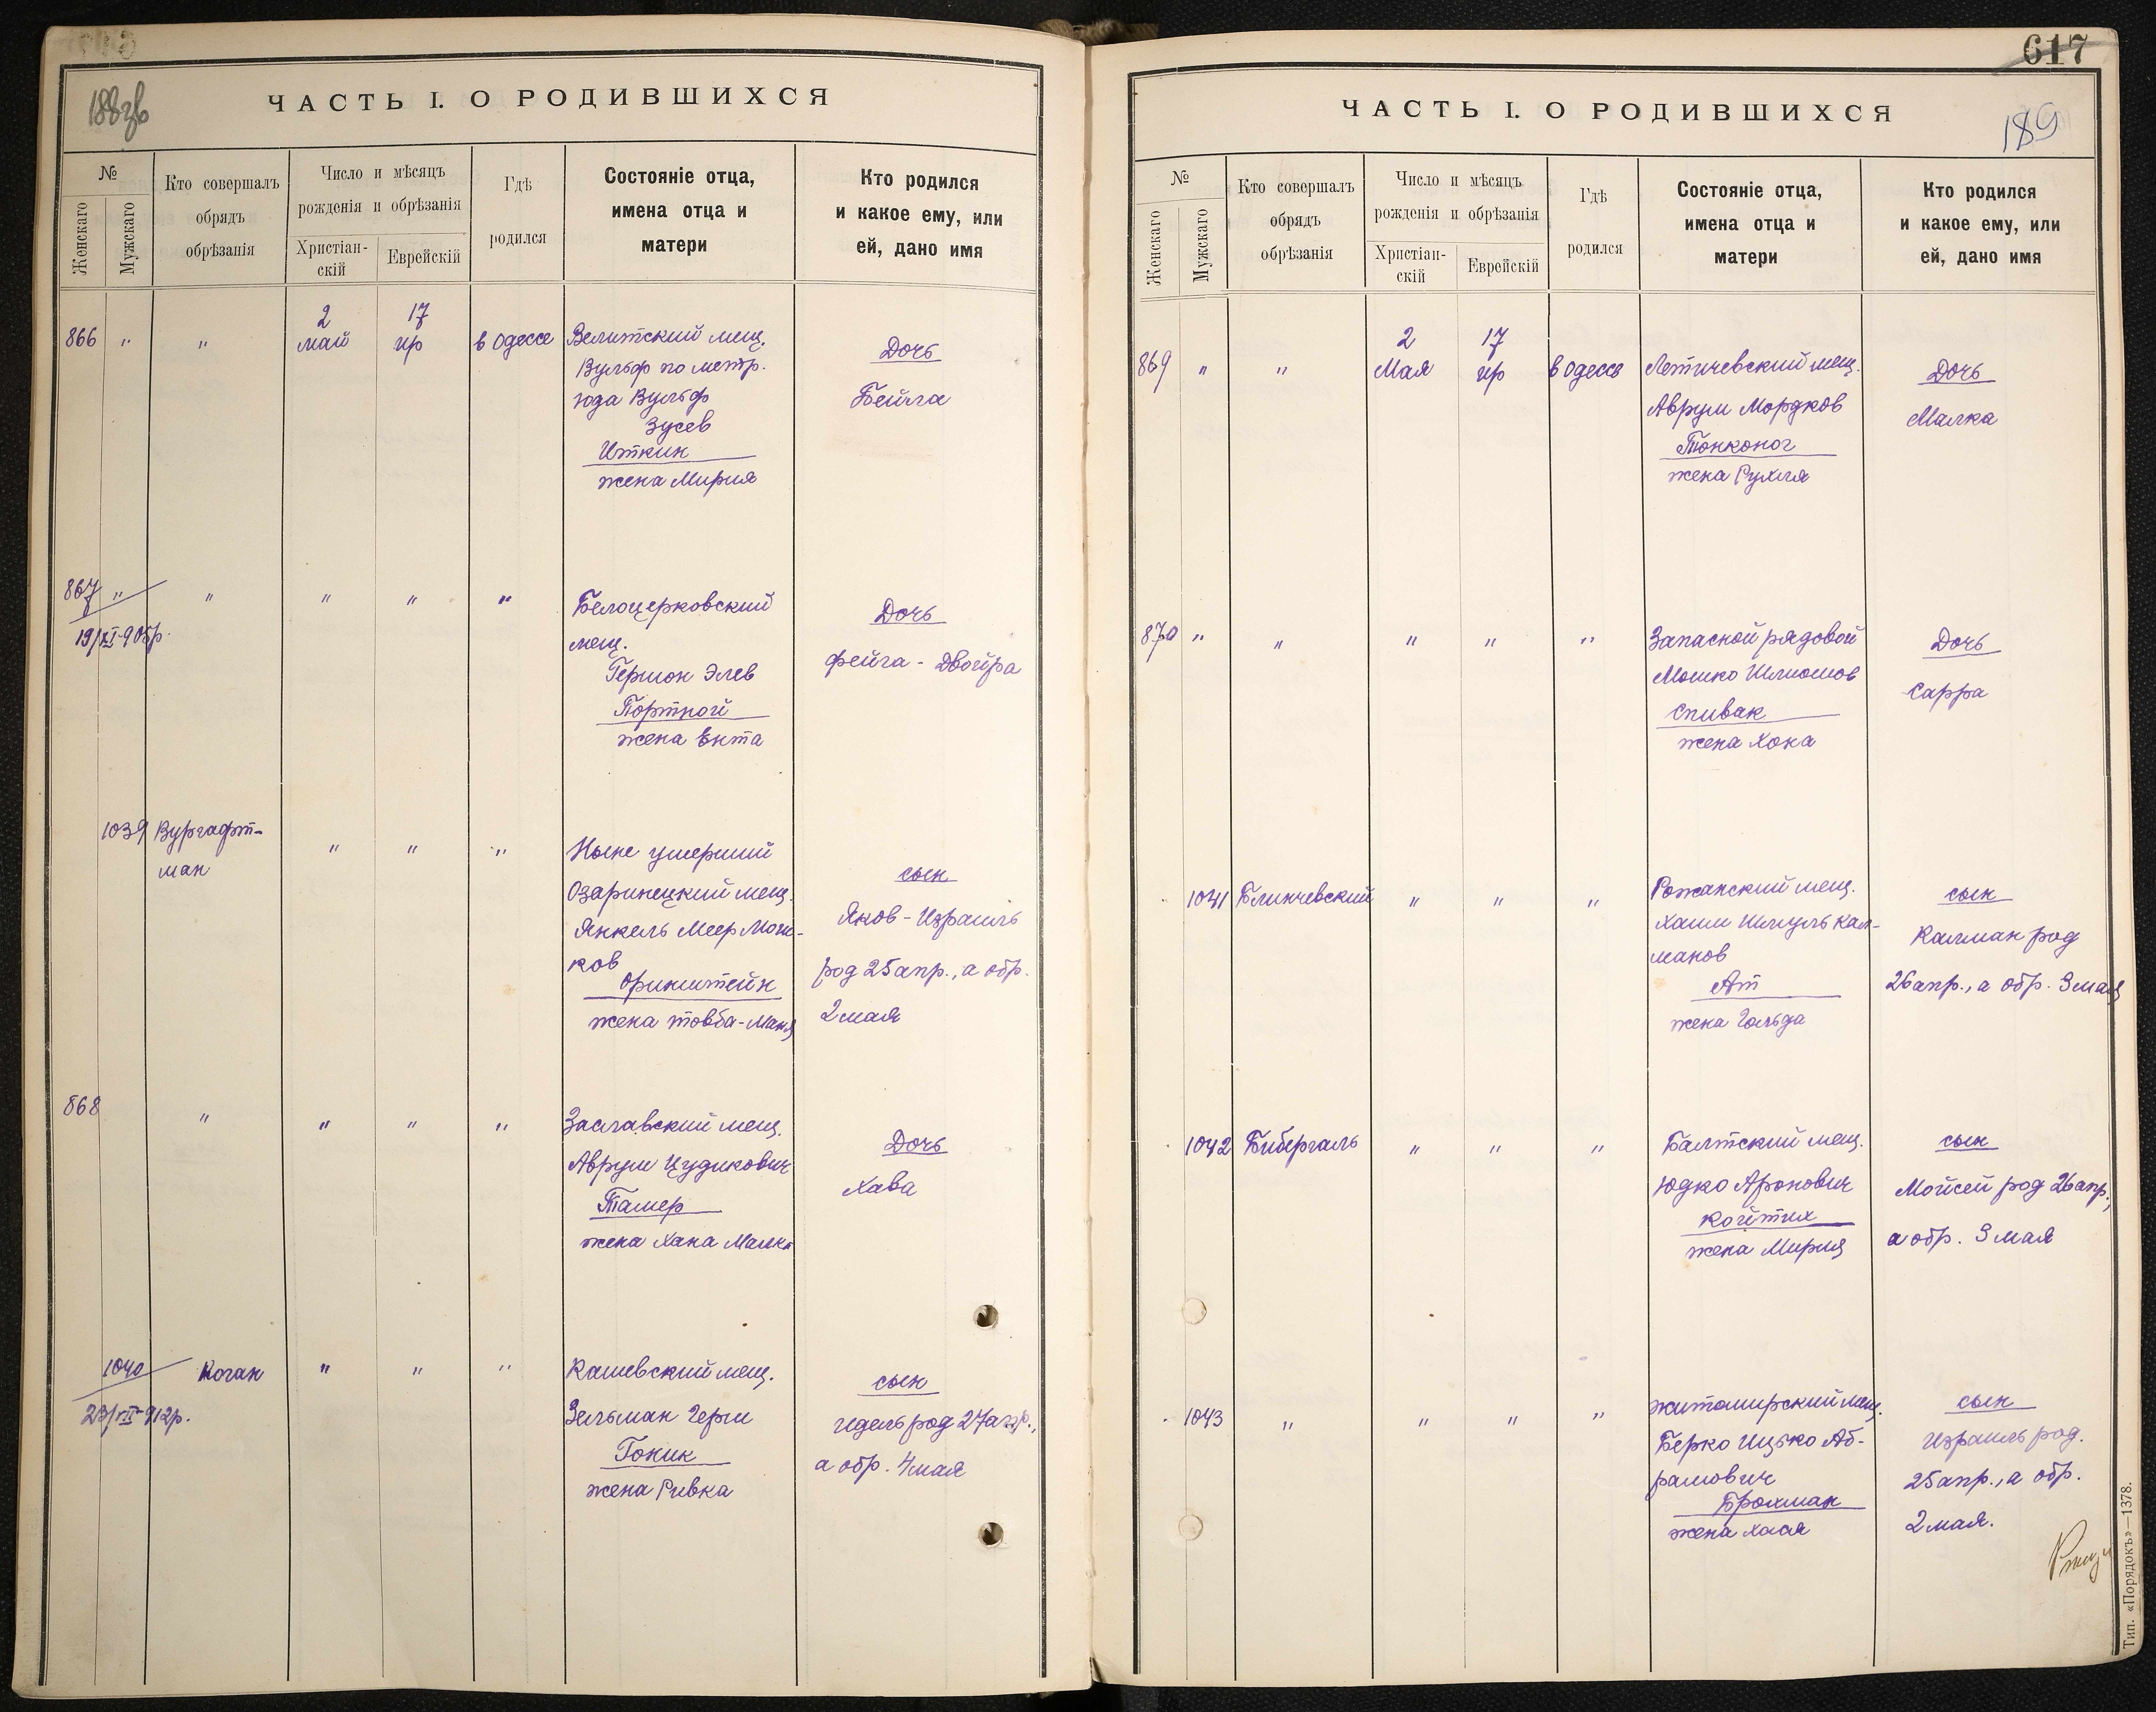 188 зв
ЧАСТЬ I. О РОДИВШИХСЯ
№
Женскаго
Мужскаго
Кто совершалъ
обрядъ
обрѣзанія
Число и мѣсяцъ
рожденія и обрѣзанія
Христіан-
скій
Еврейскій
Гдѣ
родился
Состояніе отца,
имена отца и
матери
Кто родился
и какое ему, или
ей, дано имя
866 " " 2 май 17 ир в Одессе
Велитский мещ.
Вульф по метр.
Юда Вульф
Зусев
Иткин
жена Мирия
Дочь
Бейла
867 " " " " "
Белоцерковский
мещ.
Гершон Элев
Портной
жена Ента
Дочь
Фейга - Двойра
1039 Вургафт-
ман
" " "
Ныне умерший
Озаринецкий мещ.
Янкель Меер Мош-
ков
Оринштейн
жена Товба-Маня
сын
Яков - Израиль
род 25 апр., а обр.
2 мая
868 " " " "
Заславский мещ.
Аврум Цудикович
Тамер
жена Хана Малка
Дочь
Хава
1040 Коган " " "
Кашевский мещ.
Зельман Герш
Гоник
жена Ривка
сын
Идель род 27 апр.,
а обр. 4 мая
617
ЧАСТЬ I. О РОДИВШИХСЯ
189
№
Женскаго
Мужскаго
Кто совершалъ
обрядъ
обрѣзанія
Число и мѣсяцъ
рожденія и обрѣзанія
Христіан-
скій
Еврейскій
Гдѣ
родился
Состояніе отца,
имена отца и
матери
Кто родился
и какое ему, или
ей, дано имя
869 " " 2 Мая 17 ир в Одессе
Летичевский мещ.
Аврум Мордков
Тонконог
жена Рухля
Дочь
Малка
870 " " " " "
Запасной рядовой
Мошко Шлиомов
Спивак
жена Хона
Дочь
Сарра
1041 Блинчевский " " "
Рожанский мещ.
Хаим Шмуль Кал-
манов
Ат
жена Гольда
сын
Калман род
26 апр., а обр. 3 мая
1042 Бибергаль " " "
Балтский мещ.
Юдко Аронович
Койтих
жена Мирия
сын
Мойсей род 26 апр.,
а обр. 3 мая
1043 " " " "
Житомирский мещ.
Берко Ицько Аб-
рамович
Брохман
жена Хася
сын
Израиль род.
25 апр., а обр.
2 мая.
Тип. «Порядокъ»—1378.